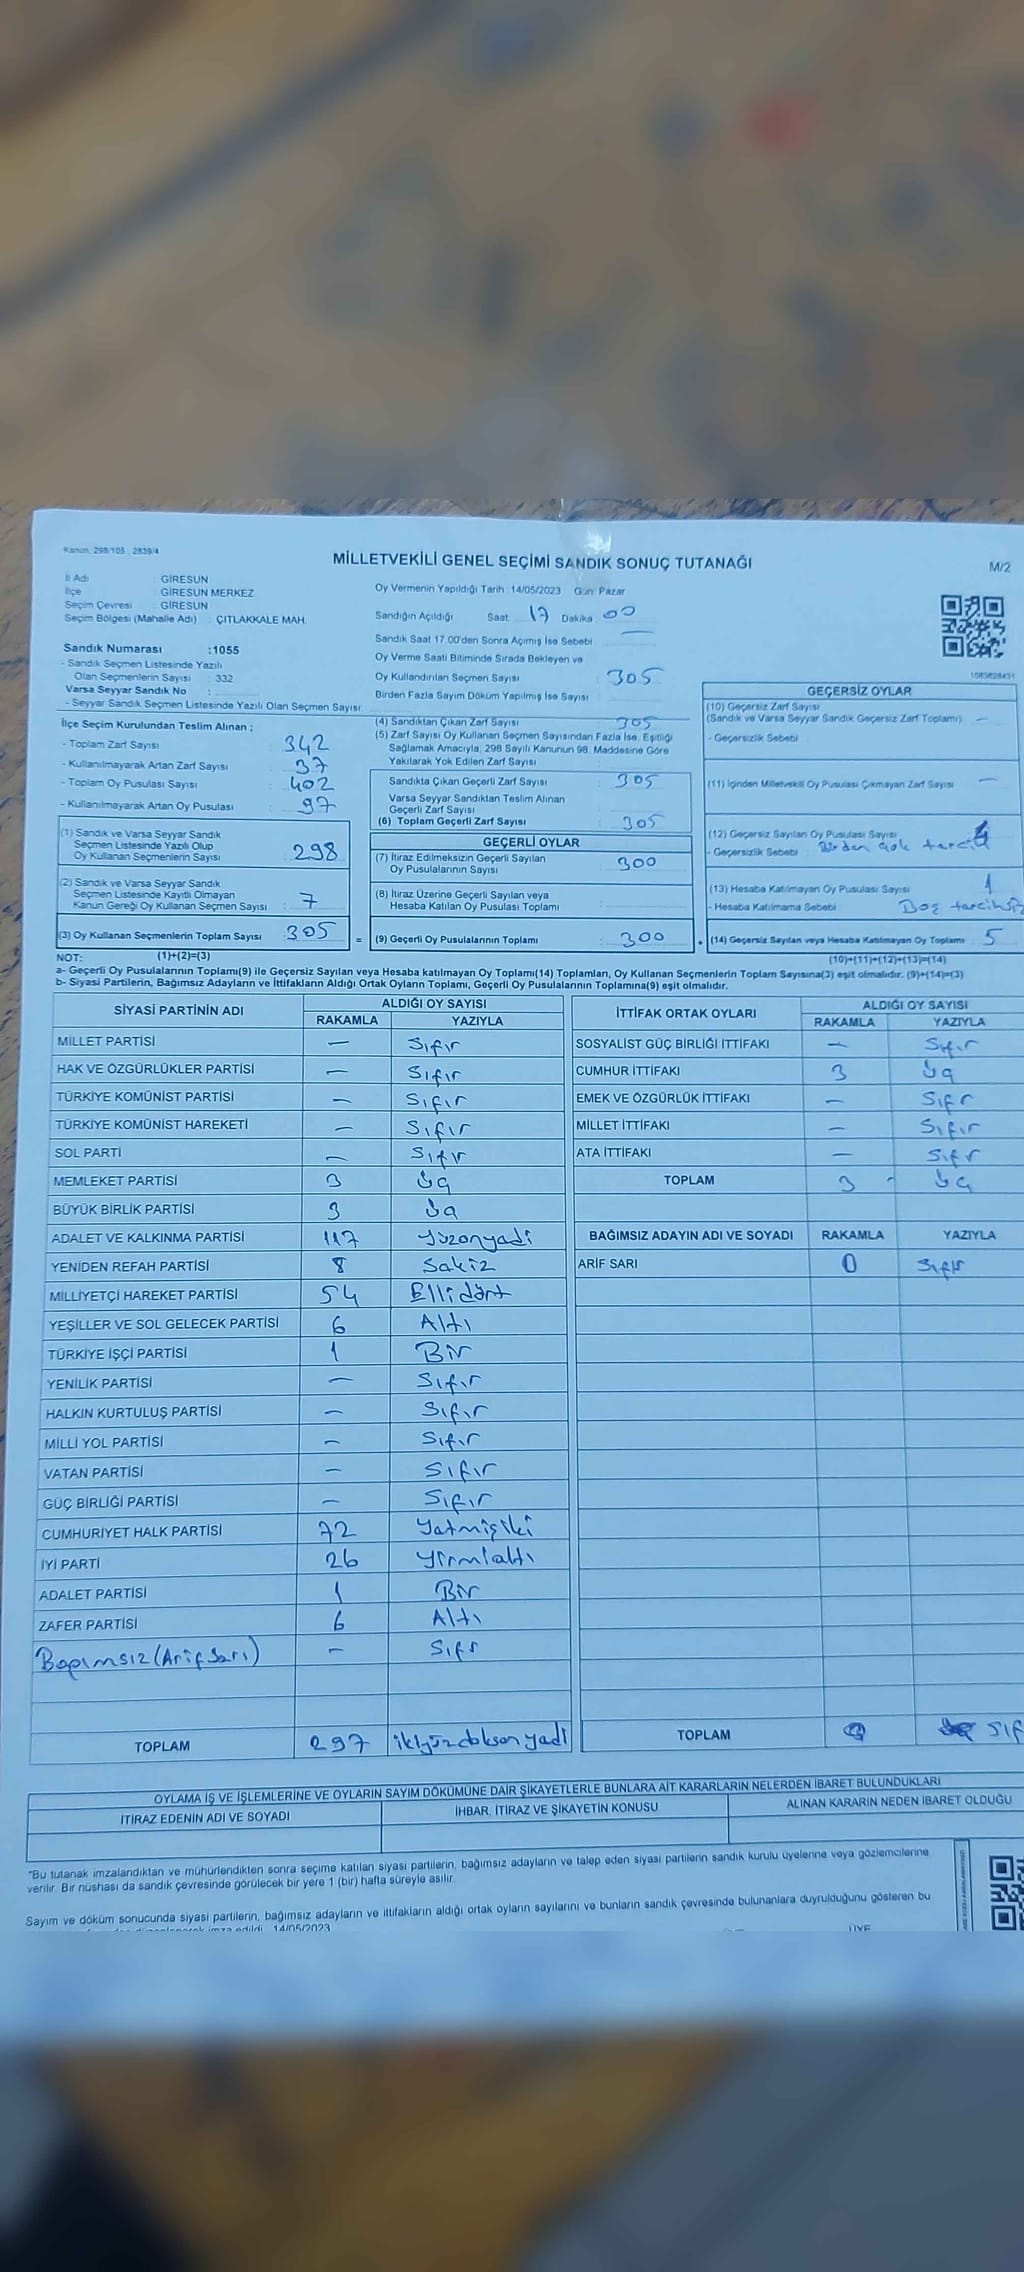 Kanun, 298/105 , 2839/4
MİLLETVEKİLİ GENEL SEÇİMİ SANDIK SONUÇ TUTANAĞI
M/2
İl Adı : GİRESUN
İlçe : GİRESUN MERKEZ
Seçim Çevresi : GİRESUN
Seçim Bölgesi (Mahalle Adı) : ÇITLAKKALE MAH.
Sandık Numarası :1055
- Sandık Seçmen Listesinde Yazılı
Olan Seçmenlerin Sayısı : 332
Varsa Seyyar Sandık No :
- Seyyar Sandık Seçmen Listesinde Yazılı Olan Seçmen Sayısı:
Oy Vermenin Yapıldığı Tarih :14/05/2023 Gün: Pazar
Sandığın Açıldığı Saat: 17 Dakika: 00
Sandık Saat 17.00'den Sonra Açımış İse Sebebi —
Oy Verme Saati Bitiminde Sırada Bekleyen ve
Oy Kullandırılan Seçmen Sayısı : 305
Birden Fazla Sayım Döküm Yapılmış İse Sayısı :
İlçe Seçim Kurulundan Teslim Alınan ;
- Toplam Zarf Sayısı : 342
- Kullanılmayarak Artan Zarf Sayısı : 37
- Toplam Oy Pusulası Sayısı : 402
- Kullanılmayarak Artan Oy Pusulası : 97
(1) Sandık ve Varsa Seyyar Sandık
Seçmen Listesinde Yazılı Olup
Oy Kullanan Seçmenlerin Sayısı : 298
(2) Sandık ve Varsa Seyyar Sandık
Seçmen Listesinde Kayıtlı Olmayan
Kanun Gereği Oy Kullanan Seçmen Sayısı : 7
(3) Oy Kullanan Seçmenlerin Toplam Sayısı : 305
(4) Sandıktan Çıkan Zarf Sayısı : 305
(5) Zarf Sayısı Oy Kullanan Seçmen Sayısından Fazla İse, Eşitliği
Sağlamak Amacıyla, 298 Sayılı Kanunun 98. Maddesine Göre
Yakılarak Yok Edilen Zarf Sayısı :
Sandıkta Çıkan Geçerli Zarf Sayısı : 305
Varsa Seyyar Sandıktan Teslim Alınan
Geçerli Zarf Sayısı :
(6) Toplam Geçerli Zarf Sayısı : 305
GEÇERLİ OYLAR
(7) İtiraz Edilmeksizin Geçerli Sayılan
Oy Pusulalarının Sayısı : 300
(8) İtiraz Üzerine Geçerli Sayılan veya
Hesaba Katılan Oy Pusulası Toplamı :
= (9) Geçerli Oy Pusulalarının Toplamı : 300
1083626431
GEÇERSİZ OYLAR
(10) Geçersiz Zarf Sayısı
(Sandık ve Varsa Seyyar Sandık Geçersiz Zarf Toplamı) : —
- Geçersizlik Sebebi :
(11) İçinden Milletvekili Oy Pusulası Çıkmayan Zarf Sayısı : —
(12) Geçersiz Sayılan Oy Pusulası Sayısı : 4
- Geçersizlik Sebebi : Birden çok tercih
(13) Hesaba Katılmayan Oy Pusulası Sayısı : 1
- Hesaba Katılmama Sebebi : Boş tercihsiz
+ (14) Geçersiz Sayılan veya Hesaba Katılmayan Oy Toplamı : 5
NOT: (1)+(2)=(3)
(10)+(11)+(12)+(13)=(14)
a- Geçerli Oy Pusulalarının Toplamı(9) ile Geçersiz Sayılan veya Hesaba katılmayan Oy Toplamı(14) Toplamları, Oy Kullanan Seçmenlerin Toplam Sayısına(3) eşit olmalıdır. (9)+(14)=(3)
b- Siyasi Partilerin, Bağımsız Adayların ve İttifakların Aldığı Ortak Oyların Toplamı, Geçerli Oy Pusulalarının Toplamına(9) eşit olmalıdır.
SİYASİ PARTİNİN ADI ALDIĞI OY SAYISI
RAKAMLA YAZIYLA
MİLLET PARTİSİ — Sıfır
HAK VE ÖZGÜRLÜKLER PARTİSİ — Sıfır
TÜRKİYE KOMÜNİST PARTİSİ — Sıfır
TÜRKİYE KOMÜNİST HAREKETİ — Sıfır
SOL PARTİ — Sıfır
MEMLEKET PARTİSİ 3 Üç
BÜYÜK BİRLİK PARTİSİ 3 Üç
ADALET VE KALKINMA PARTİSİ 117 Yüzonyedi
YENİDEN REFAH PARTİSİ 8 Sekiz
MİLLİYETÇİ HAREKET PARTİSİ 54 Ellidört
YEŞİLLER VE SOL GELECEK PARTİSİ 6 Altı
TÜRKİYE İŞÇİ PARTİSİ 1 Bir
YENİLİK PARTİSİ — Sıfır
HALKIN KURTULUŞ PARTİSİ — Sıfır
MİLLİ YOL PARTİSİ — Sıfır
VATAN PARTİSİ — Sıfır
GÜÇ BİRLİĞİ PARTİSİ — Sıfır
CUMHURİYET HALK PARTİSİ 72 Yetmişiki
İYİ PARTİ 26 Yirmialtı
ADALET PARTİSİ 1 Bir
ZAFER PARTİSİ 6 Altı
Bağımsız (Arif Sarı) — Sıfır
TOPLAM 297 ikiyüzdoksanyedi
İTTİFAK ORTAK OYLARI ALDIĞI OY SAYISI
RAKAMLA YAZIYLA
SOSYALİST GÜÇ BİRLİĞİ İTTİFAKI — Sıfır
CUMHUR İTTİFAKI 3 Üç
EMEK VE ÖZGÜRLÜK İTTİFAKI — Sıfır
MİLLET İTTİFAKI — Sıfır
ATA İTTİFAKI — Sıfır
TOPLAM 3 Üç
BAĞIMSIZ ADAYIN ADI VE SOYADI RAKAMLA YAZIYLA
ARİF SARI 0 Sıfır
TOPLAM SIF
OYLAMA İŞ VE İŞLEMLERİNE VE OYLARIN SAYIM DÖKÜMÜNE DAİR ŞİKAYETLERLE BUNLARA AİT KARARLARIN NELERDEN İBARET BULUNDUKLARI
İTİRAZ EDENİN ADI VE SOYADI İHBAR, İTİRAZ VE ŞİKAYETİN KONUSU ALINAN KARARIN NEDEN İBARET OLDUĞU
"Bu tutanak imzalandıktan ve mühürlendikten sonra seçime katılan siyasi partilerin, bağımsız adayların ve talep eden siyasi partilerin sandık kurulu üyelerine veya gözlemcilerine
verilir. Bir nüshası da sandık çevresinde görülecek bir yere 1 (bir) hafta süreyle asılır.
Sayım ve döküm sonucunda siyasi partilerin, bağımsız adayların ve ittifakların aldığı ortak oyların sayılarını ve bunların sandık çevresinde bulunanlara duyrulduğunu gösteren bu
imza edildi. 14/05/2023
ÜYE